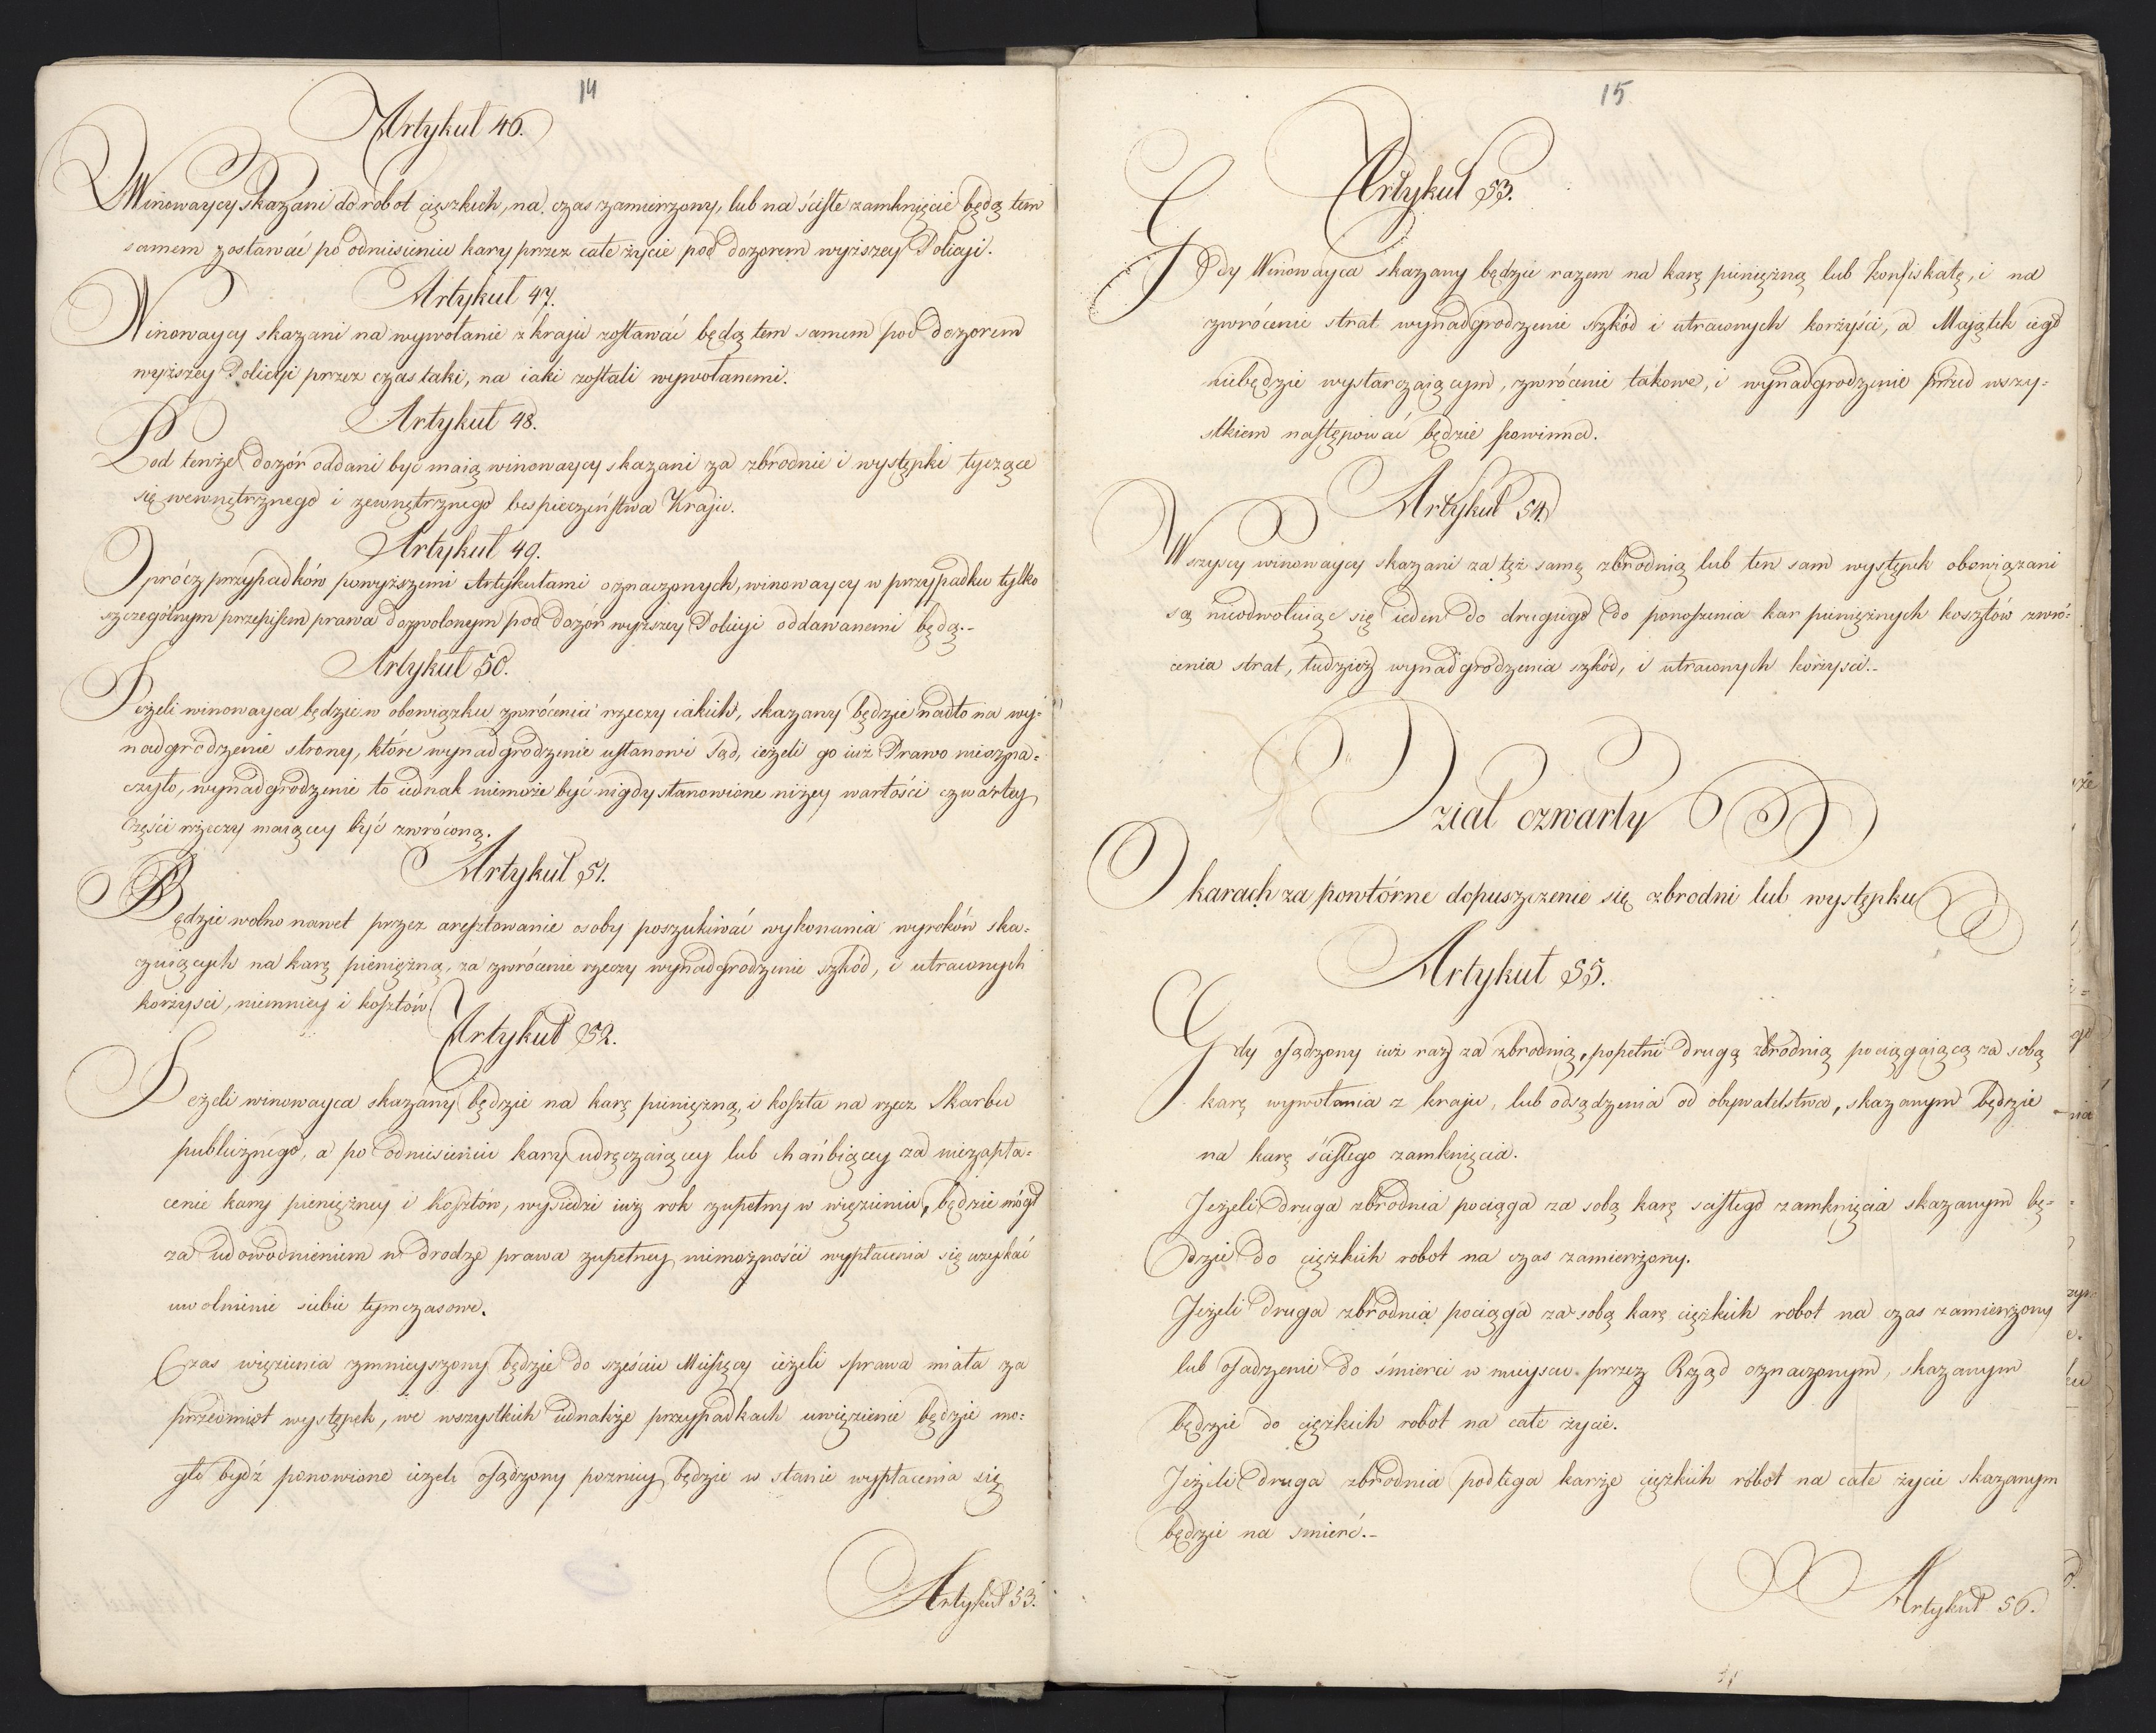 14
Artykuł 46.
Winowaycy skazani do robot cięszkich, na czas zamierzony, lub na ścisłe zamknięcie będą tem
samem zostawać po odniesieniu kary przez całe życie pod dozorem wyższey Policyi.
Artykuł 47.
Winowaycy skazani na wywołanie z kraju zostawać będą tem samem pod dozorem
wyższey Policyi przez czas taki, na iaki zostali wywołanemi.
Artykuł 48.
Pod tenże dozór oddani być maią winowaycy skazani za zbrodnie i występki tyczące
się wewnętrznego i zewnętrznego bespieczeństwa Kraju.
Artykuł 49.
Oprócz przypadków powyższemi Artykułami oznaczonych, winowaycy w przypadku tylko
szczególnym przepisem prawa dozwolonym pod dozór wyższey Policyi oddawanemi będą.-
Artykuł 50.
Jeżeli winowayca będzie w obowiązku zwrócenia rzeczy iakich, skazany będzie nadto na wy=
nadgrodzenie strony, które wynadgrodzenie ustanowi Sąd, ieżeli go iuż Prawo nieozna=
czyło, wynadgrodzenie to iednak niemoże być nigdy stanowione niżey wartości czwartey
Części rzeczy maiącey być zwróconą.
Artykuł 51.
Będzie wolno nawet przez aresztowanie osoby poszukiwać wykonania wyroków ska=
zuiących na karę pieniężną, za zwrócenie rzeczy wynadgrodzenie szkód, i utraconych
korzyści, niemniey i kosztów.
Artykuł 52.
Jeżeli winowayca skazany będzie na karę pieniężną, i koszta na rzecz Skarbu
publicznego, a po odniesieniu kary udręczaiącey lub hańbiącey za niezapła=
cenie kary pieniężney i kosztów, wysiedzi iuż rok zupełny w więzieniu, będzie mógł
za udowodnieniem w drodze prawa zupełney niemożności wypłacenia się uzyskać
uwolnienie siebie tymczasowe.
Czas więzienia zmnieyszony będzie do sześciu Miesięcy ieżeli sprawa miała za
przedmiot występek, we wszystkich iednakże przypadkach uwięzienie będzie mo=
gło bydź ponowione ieżeli osądzony pozniey będzie w stanie wypłacenia się
Artykuł 53.
15
Artykuł 53.
Gdy Winowayca skazany będzie razem na karę pieniężną lub Konfiskatę, i na
zwrócenie strat wynadgrodzenie szkód i utraconych korzyści, a Maiątek iego
niebędzie wystarczaiącym, zwrócenie takowe, i wynadgrodzenie przed wszy=
stkiem następować będzie powinno.
Artykuł 54.
Wszyscy winowaycy skazani za też samę zbrodnią lub ten sam występek obowiązani
są nieodwołuiąc się ieden do drugiego do ponoszenia kar pieniężnych kosztów zwró=
cenia strat, tudzież wynadgrodzenia szkód, i utraconych korzyści.-
Dział czwarty
O karach za powtórne dopuszczenie się zbrodni lub występku
Artykuł 55.
Gdy osądzony iuż raz za zbrodnią, popełni drugą zbrodnią pociągaiącą za sobą
karę wywołania z kraju, lub odsądzenia od obywatelstwa, skazanym będzie
na karę ścisłego zamknięcia.
Jeżeli druga zbrodnia pociąga za sobą karę scisłego zamknięcia skazanym bę=
dzie do cięzkich robot na czas zamierzony.
Jeżeli druga zbrodnia pociąga za sobą karę cięzkich robot na czas zamierzony
lub osadzenie do śmierci w mieyscu przez Rząd oznaczonym, skazanym
będzie do cięzkich robot na całe życie.
Jeżeli druga zbrodnia podlega karze cięzkich robot na całe życie skazanym
będzie na smierć.-
Artykuł 56.